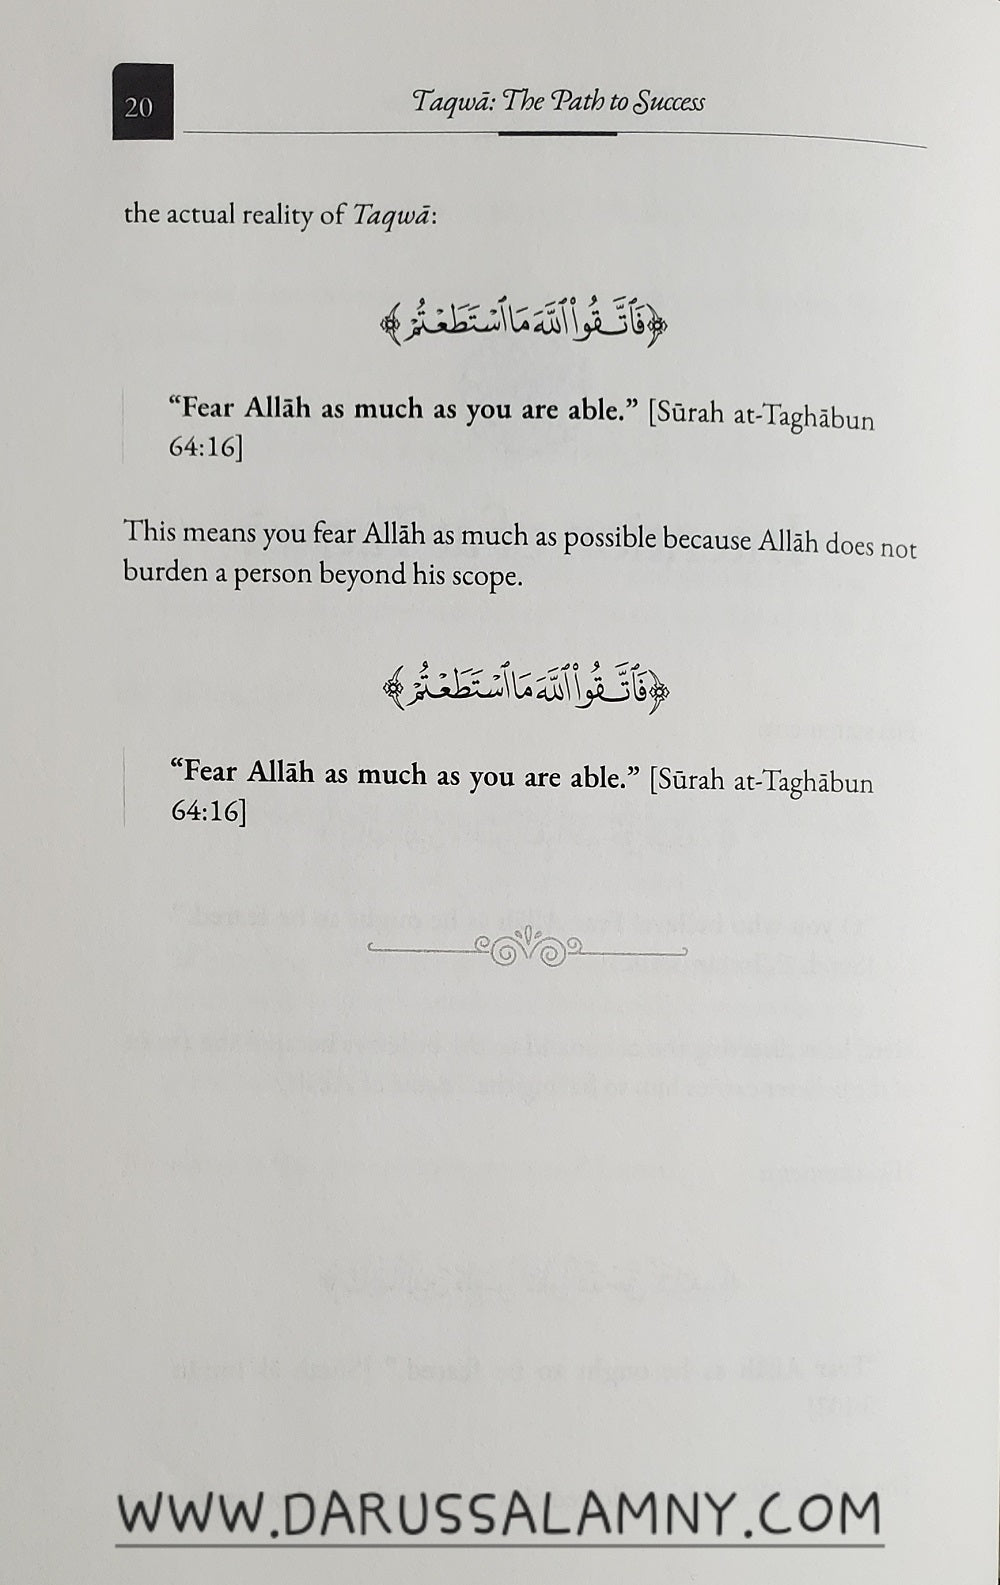 20
Taqwā: The Path to Success
the actual reality of Taqwā:
﴿فَٱتَّقُوا۟ ٱللَّهَ مَا ٱسْتَطَعْتُمْ﴾
“Fear Allāh as much as you are able.” [Sūrah at-Taghābun
64:16]
This means you fear Allāh as much as possible because Allāh does not
burden a person beyond his scope.
﴿فَٱتَّقُوا۟ ٱللَّهَ مَا ٱسْتَطَعْتُمْ﴾
“Fear Allāh as much as you are able.” [Sūrah at-Taghābun
64:16]
WWW.DARUSSALAMNY.COM